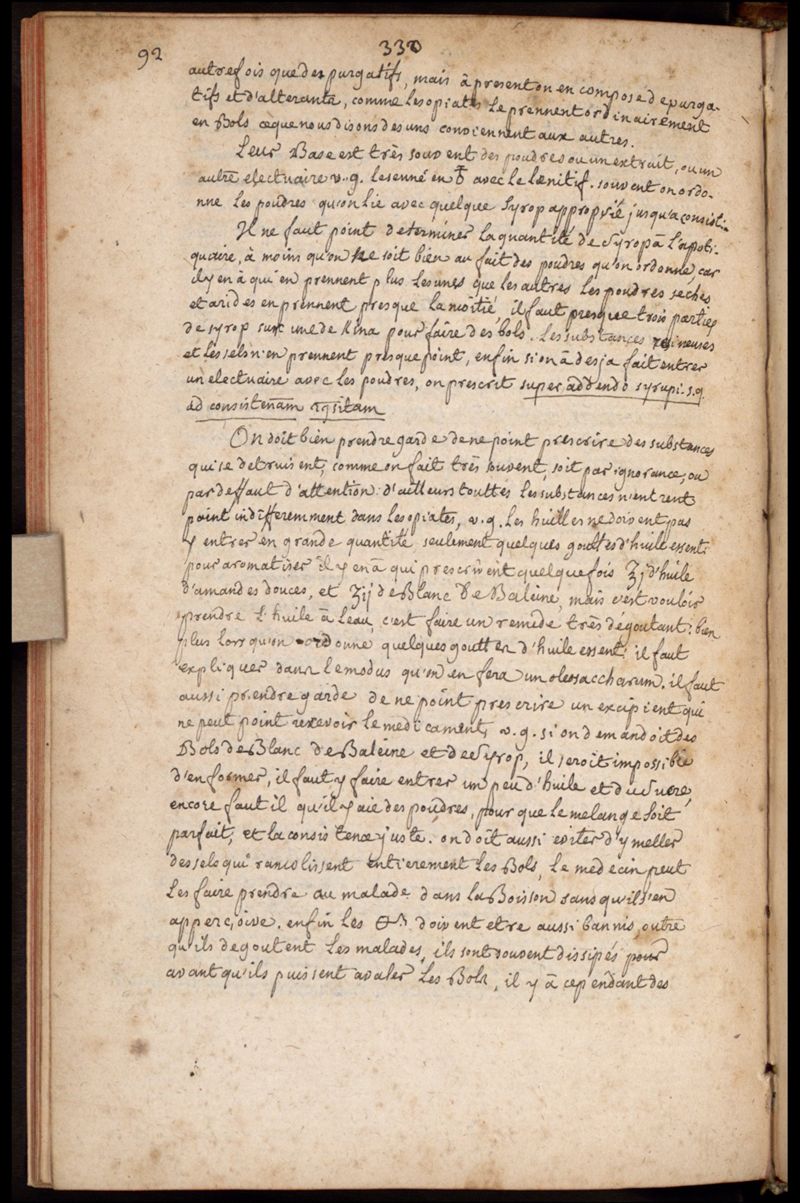 92
330
autrefois que des purgatifs, mais à present on en compose de purga-
tifs et d'alterants, comme les opiates se prennent ordinairement
en Bols ce que nous disons des uns conviennent aux autres.
Leur Base est très souvent des poudres ou un extrait, ou un
autre electuaire v.g. le senné en avec le lenitif. souvent on ordo-
nne les poudres qu'on lie avec quelque Syrop approprié jusqu'a consist:
Il ne faut point determiner la quantité de Syrop à l'apoti-
quaire, à moins qu'on ne soit bien au fait des poudres qu'on ordonne car
il y en à qui en prennent plus les unes que les autres les poudres seches
et arides en prennent presque la moitié il faut presque trois parties
de syrop sur une de Kina pour faire des bols. Les substances resineuses
et les sels n'en prennent presque point, enfin si on à desja fait entrer
un electuaire avec les poudres, on prescrit super addendo syrupi. s.q.
ad consistenam
On doit bien prendre garde de ne point prescrire des substances
qui se detruisent, comme on fait très souvent, soit par ignorance, ou
par deffaut d'attention: d'ailleurs touttes les substances n'entrent
point indifferemment dans les opiates, v.g. les huilles ne doivent pas
y entrer en grande quantité seulement quelques gouttes d'huile essent:
pour aromatiser il y en à qui prescrivent quelquefois ʒj d'huile
d'amandes douces, et ʒij de Blanc de Baleine, mais c'est vouloir
prendre l'huile à l'eau, c'est faire un remede très dégoutant; bien
plus lorsqu'on ordonne quelques goutter d'huile essent: il faut
expliquer dans le modus qu'on en fera un oleosaccharum. il faut
aussi prendre garde de ne point prescrire un excipient qui
ne peut point recevoir le medicament, v.g. si on demandoit des
Bols de Blanc de Baleine et de Syrop, il seroit impossible
d'en former, il faut y faire entrer un peu d'huile et du Sucre,
encore faut il qu'il y aie des poudres, pour que le melange soit
parfait, et la consistence juste. on doit aussi eviter d'y meller
des sels qui entierement les Bols, le medecin peut
les faire prendre au malade dans la Boisson sans qu'il s'en
apperçoive. enfin les doivent etre aussi bannis, outre
qu'ils degoutent les malades, ils sont souvent dissipés pour
avant qu'ils puissent avaler les Bols, il y à cependant des